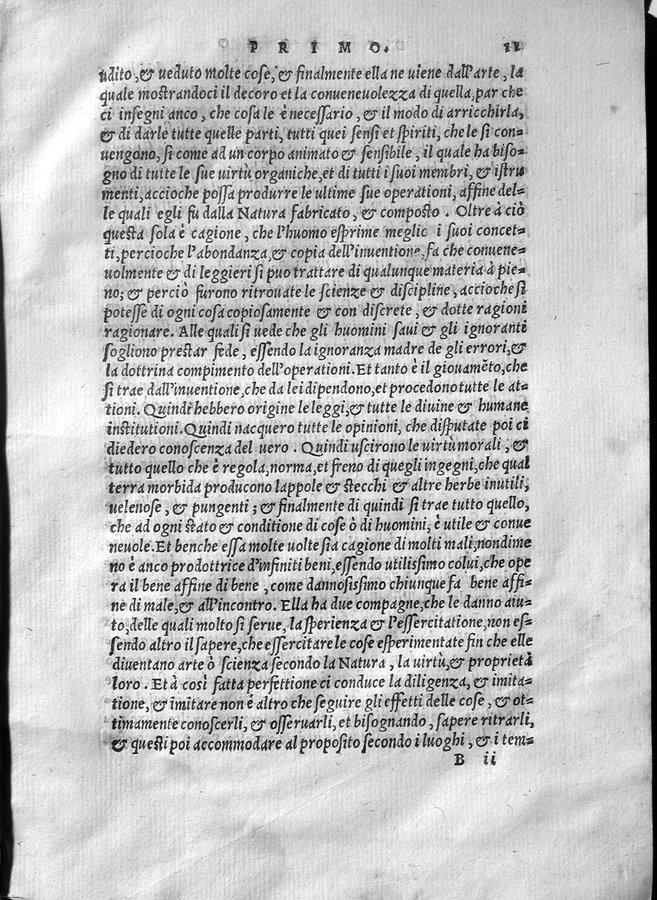 PRIMO. 11
udito, & ueduto molte cose, & finalmente ella ne uiene dall'arte, la
quale mostrandoci il decoro et la conueneuolezza di quella, par che
ci insegni anco, che cosa le è necessario, & il modo di arricchirla,
& di darle tutte quelle parti, tutti quei sensi et spiriti, che le si con=
uengono, si come ad un corpo animato & sensibile, il quale ha biso=
gno di tutte le sue virtù organiche, et di tutti i suoi membri, & istru
menti, accioche possa produrre le ultime sue operationi, affine del=
le quali egli fu dalla Natura fabricato, & composto. Oltre à ciò
questa sola è cagione, che l'huomo esprime meglio i suoi concet=
ti, percioche l'abondanza, & copia dell'inuentione, fa che conuene=
uolmente & di leggieri si puo trattare di qualunque materia à pie=
no; & perciò furono ritrouate le scienze & discipline, accioche si
potesse di ogni cosa copiosamente & con discrete, & dotte ragioni
ragionare. Alle quali si uede che gli huomini saui & gli ignoranti
sogliono prestar fede, essendo la ignoranza madre de gli errori, &
la dottrina compimento dell'operationi. Et tanto è il giouamēto, che
si trae dall'inuentione, che da lei dipendono, et procedono tutte le at=
tioni. Quindi hebbero origine le leggi, & tutte le diuine & humane
institutioni. Quindi nacquero tutte le opinioni, che disputate poi ci
diedero conoscenza del uero. Quindi uscirono le virtù morali, &
tutto quello che è regola, norma, et freno di quegli ingegni, che qual
terra morbida producono lappole & stecchi & altre herbe inutili,
uelenose, & pungenti; & finalmente di quindi si trae tutto quello,
che ad ogni stato & conditione di cose ò di huomini, è utile & conue
neuole. Et benche essa molte uolte sia cagione di molti mali, nondime
no è anco produttrice d'infiniti beni, essendo utilissimo colui, che ope
ra il bene affine di bene, come dannosissimo chiunque fa bene affi=
ne di male, & all'incontro. Ella ha due compagne, che le danno aiu=
to, delle quali molto si serue, la sperienza & l'essercitatione, non es=
sendo altro il sapere, che essercitare le cose esperimentate fin che elle
diuentano arte ò scienza secondo la Natura, la virtù, & proprietà
loro. Et à così fatta perfettione ci conduce la diligenza, & imita=
tione, & imitare non è altro che seguire gli effetti delle cose, & ot=
timamente conoscerli, & osseruarli, et bisognando, sapere ritrarli,
& questi poi accommodare al proposito secondo i luoghi, & i tem=
B ii